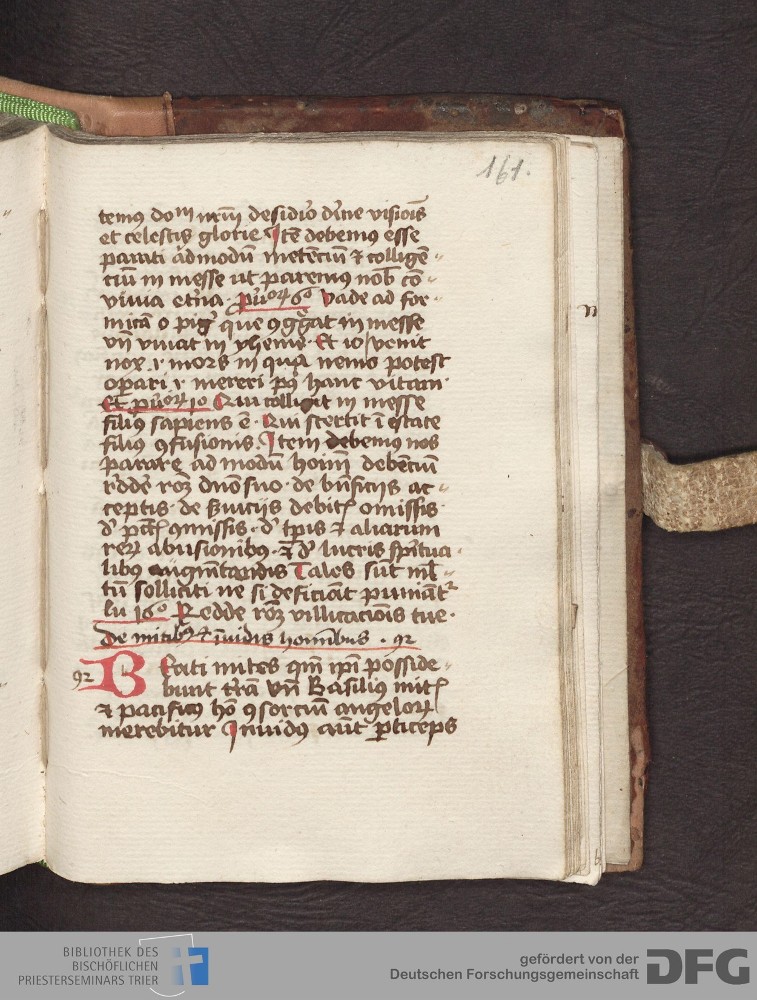 161.
temus dom nrm desidio dine visiois
et celestis glorie Ite debemus esse
parati admodu metenciu & collige
ciu in messe ut paremus nob co
vivia etna puor 6o Vade ad for
mica o pig que 9ggat in messe
vn vivat in yheme Et io venit
nox in qua nemo potest
opari mereri hanc vitam
Et puor 10 Qui colligit in messe
filius sapiens e Qui stertit i estate
filius 9fusionis Item debemus nos
parare ad modu homi debenciu
redde roz dno suo de bnficijs ac
ceptis de svicijs debit omissis
d pct 9missis d tpis & aliarum
rer abusionibus & d lucris spitua
libus augmtandis Tales sut ml
tu solliciti ne si deficiat puniat
lu 16o Redde roz villicacois tue
de mitibus & invidis hominibus 92
92 Beati mites qm ipi posside
bunt trra Vn Basilius mit
& pacificus ho 9sorciu angelor
merebitur Invidus aut pticeps
n
b
BIBLIOTHEK DES
BISCHÖFLICHEN
PRIESTERSEMINARS TRIER
gefördert von der
Deutschen Forschungsgemeinschaft
DFG